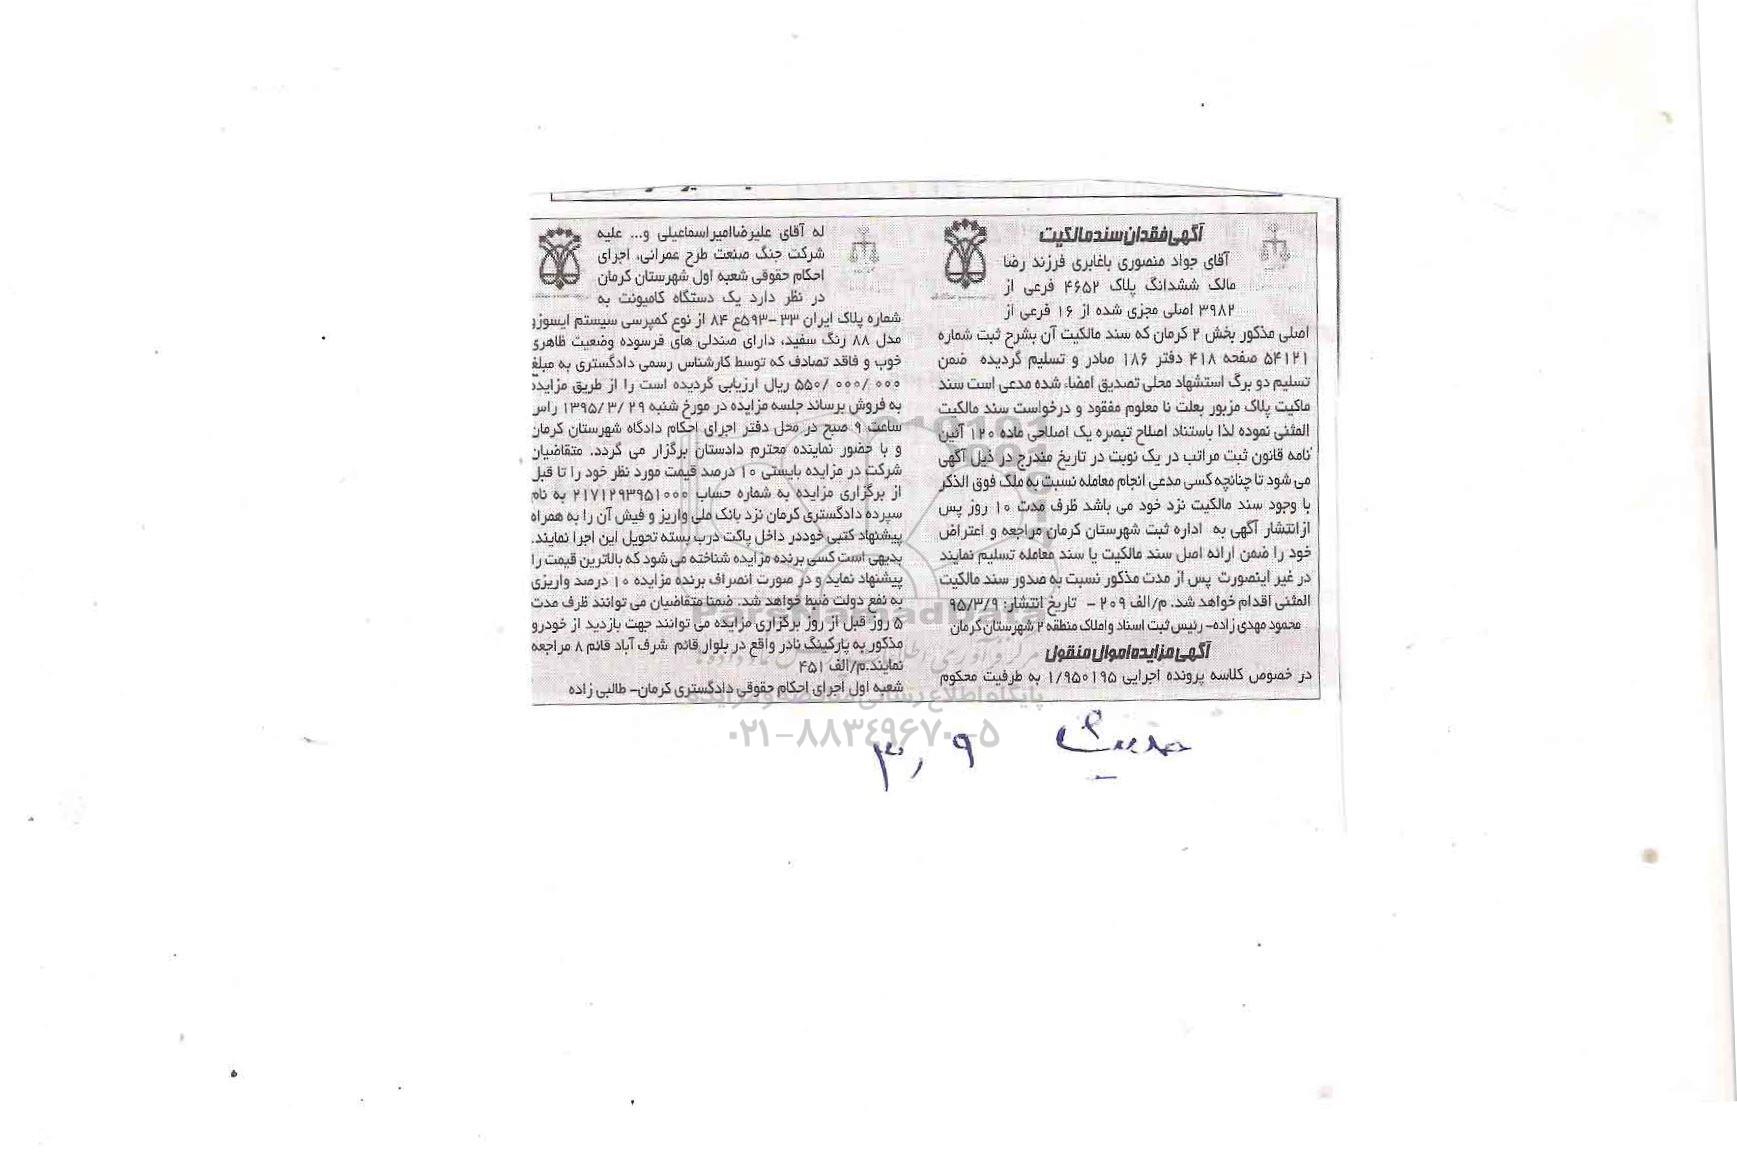 آگهی فقدان سند مالکیت
آقای جواد منصوری باغابری فرزند رضا
مالک ششدانگ پلاک ۴۶۵۲ فرعی از
۳۹۸۲ اصلی مجزی شده از ۱۶ فرعی از
اصلی مذکور بخش ۲ کرمان که سند مالکیت آن بشرح ثبت شماره
۵۴۱۲۱ صفحه ۴۱۸ دفتر ۱۸۶ صادر و تسلیم گردیده ضمن
تسلیم دو برگ استشهاد محلی تصدیق امضاء شده مدعی است سند
ماکیت پلاک مزبور بعلت نا معلوم مفقود و درخواست سند مالکیت
المثنی نموده لذا باستناد اصلاح تبصره یک اصلاحی ماده ۱۲۰ آئین
نامه قانون ثبت مراتب در یک نوبت در تاریخ مندرج در ذیل آگهی
می شود تا چنانچه کسی مدعی انجام معامله نسبت به ملک فوق الذکر
با وجود سند مالکیت نزد خود می باشد ظرف مدت ۱۰ روز پس
از انتشار آگهی به اداره ثبت شهرستان کرمان مراجعه و اعتراض
خود را ضمن ارائه اصل سند مالکیت یا سند معامله تسلیم نمایند
در غیر اینصورت پس از مدت مذکور نسبت به صدور سند مالکیت
المثنی اقدام خواهد شد. م/الف ۲۰۹ - تاریخ انتشار: ۹۵/۳/۹
محمود مهدی زاده- رئیس ثبت اسناد و املاک منطقه ۲ شهرستان کرمان
آگهی مزایده اموال منقول
در خصوص کلاسه پرونده اجرایی ۱/۹۵۰۱۹۵ به طرفیت محکوم
له آقای علیرضا امیراسماعیلی و... علیه
شرکت جنگ صنعت طرح عمرانی، اجرای
احکام حقوقی شعبه اول شهرستان کرمان
در نظر دارد یک دستگاه کامیونت به
شماره پلاک ایران ۳۳ -۵۹۳ع ۸۴ از نوع کمپرسی سیستم ایسوزو
مدل ۸۸ رنگ سفید، دارای صندلی های فرسوده وضعیت ظاهری
خوب و فاقد تصادف که توسط کارشناس رسمی دادگستری به مبلغ
۵۵۰/ ۰۰۰/ ۰۰۰ ریال ارزیابی گردیده است را از طریق مزایده
به فروش برساند جلسه مزایده در مورخ شنبه ۲۹ /۳/ ۱۳۹۵ راس
ساعت ۹ صبح در محل دفتر اجرای احکام دادگاه شهرستان کرمان
و با حضور نماینده محترم دادستان برگزار می گردد. متقاضیان
شرکت در مزایده بایستی ۱۰ درصد قیمت مورد نظر خود را تا قبل
از برگزاری مزایده به شماره حساب ۲۱۷۱۲۹۳۹۵۱۰۰۰ به نام
سپرده دادگستری کرمان نزد بانک ملی واریز و فیش آن را به همراه
پیشنهاد کتبی خوددر داخل پاکت درب بسته تحویل این اجرا نمایند.
بدیهی است کسی برنده مزایده شناخته می شود که بالاترین قیمت را
پیشنهاد نماید و در صورت انصراف برنده مزایده ۱۰ درصد واریزی
به نفع دولت ضبط خواهد شد. ضمنا متقاضیان می توانند ظرف مدت
۵ روز قبل از روز برگزاری مزایده می توانند جهت بازدید از خودرو
مذکور به پارکینگ نادر واقع در بلوار قائم شرف آباد قائم ۸ مراجعه
نمایند.م/الف ۴۵۱
شعبه اول اجرای احکام حقوقی دادگستری کرمان- طالبی زاده
ParsNamadData
پایگاه اطلاع رسانی مناقصه و مزایده
۰۲۱-۸۸۳۴۹۶۷۰-۵
۳٫۹